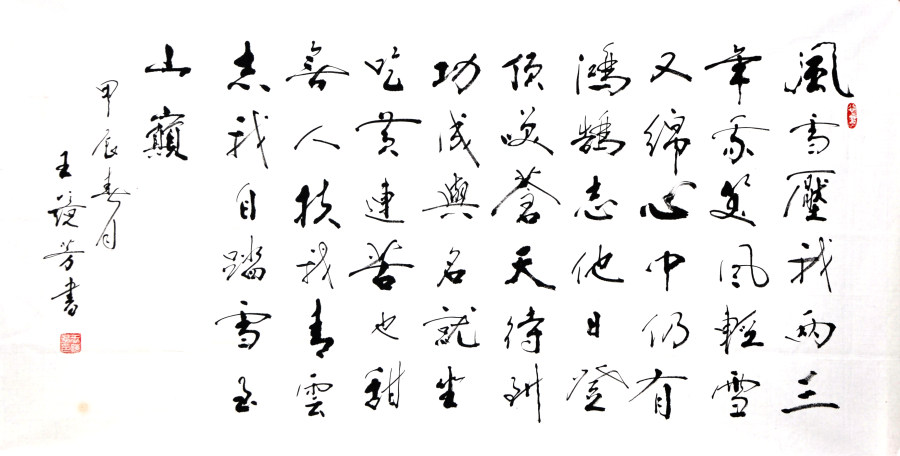 風雪壓我兩三
年我笑風輕雪
又綿心中仍有
鴻鵠志他日登
頂笑蒼天待到
功成與名就坐
吃黃連苦也甜
無人扶我青雲
志我自踏雪至
山巔
甲辰春月
王鏡芳書